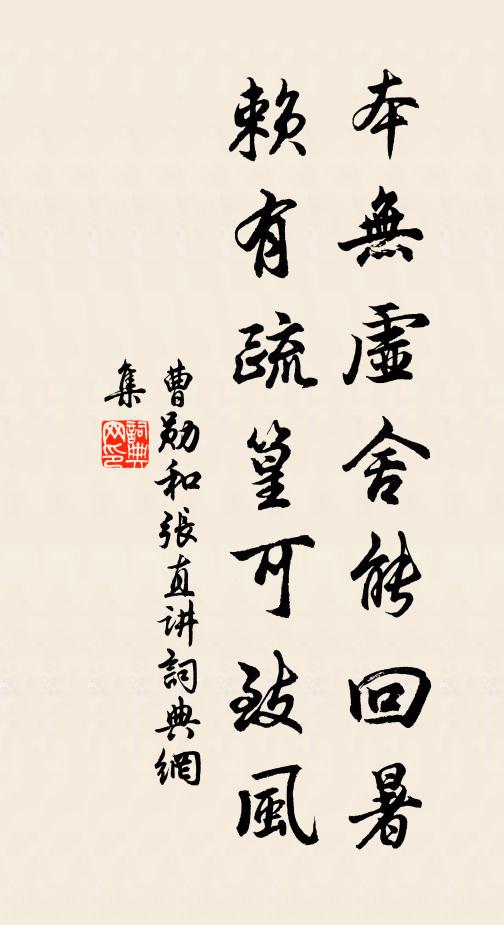 本無虛舍能回暑
賴有疏篁可致風
曹勛和張直讲詞典網
集
詞典
网印